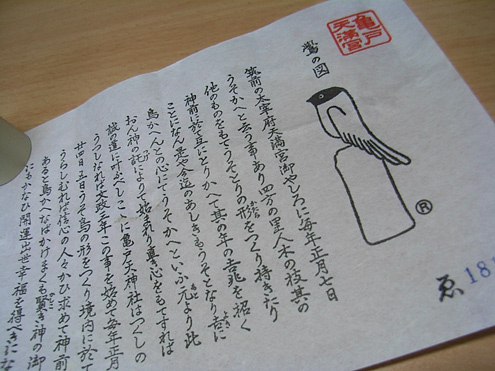 亀戸天満宮
鷽の図
筑前の太宰府天満宮御やしろに毎年正月七日
うそかへと云う事あり四方の里人木の枝其の
他のものもてうそとりの形をつくり持きたり
神前に於て互にとりかへて其の年の吉兆を招く
ことになん老や今迄のあしきもうそとなり吉に
鳥かへんとの心にてうそかへといふ元より此
おん神の託によりて始まれり真心をもてすれば
誠の道に叶ふべしこゝに亀戸天神社はつくしの
うつしなれば文政三年この事を始めて毎年正月
廿四日五日うそ鳥の形をつくり境内に於て
うらしむれば信心の人々かひ求めて神前
あると鳥かへなばかけまくも賢き神の御
にもかなひ開運出世幸福を得べきにな
®
ゑ 18